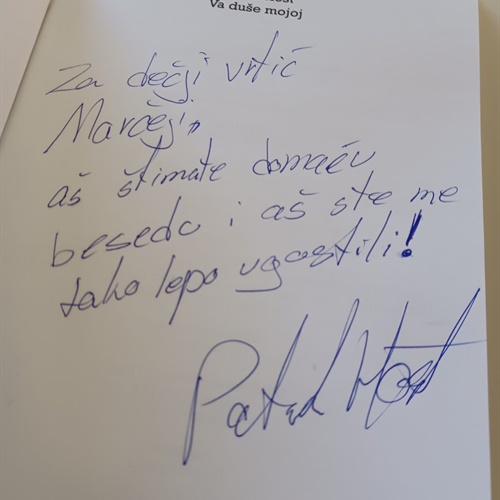 Va duše mojoj
Za dečji vrtić
Marčeji,
aš štimate domaću
besedo i aš ste me
tako lepo ugostili!